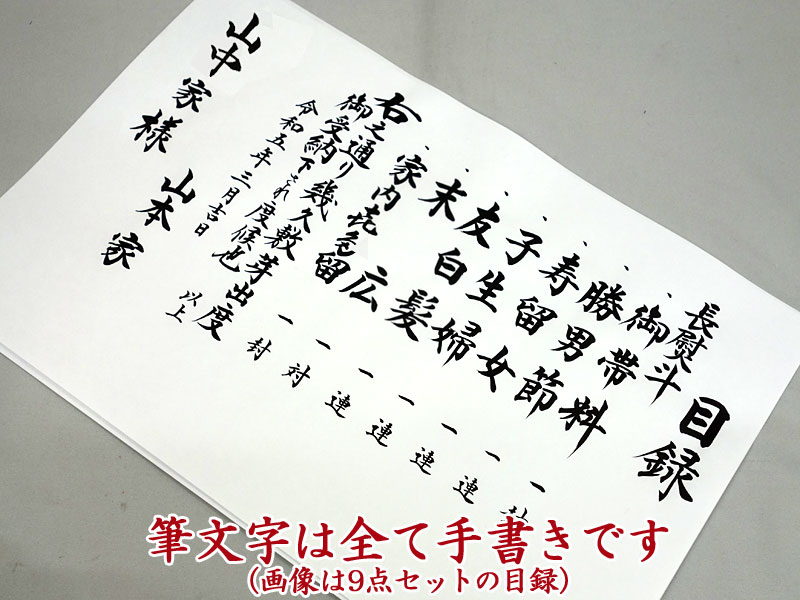 目録
長熨斗
一、御帯料 一
一、勝男節 一連
一、寿留女 一連
一、子生婦 一連
一、友白髪 一連
一、末広 一対
一、家内㐂多留 一封
右之通り幾久敷芽出度
御受納下され度候也 以上
令和五年三月吉日
山本家
山中家様
筆文字は全て手書きです
(画像は9点セットの目録)